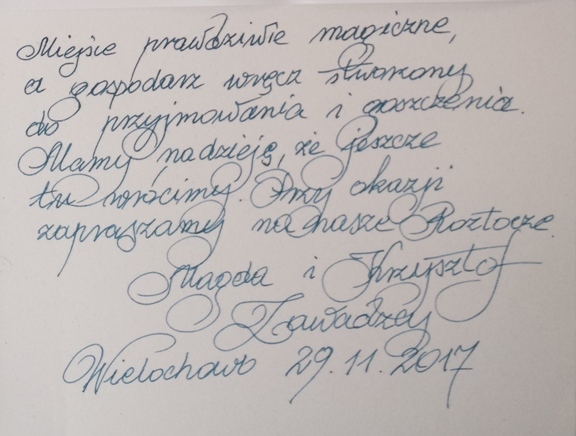 Miejsce prawdziwie magiczne,
a gospodarz wręcz stworzony
do przyjmowania i goszczenia.
Mamy nadzieję, że jeszcze
tu wrócimy. Przy okazji
zapraszamy na nasze Roztocze.
Magda i Krzysztof
Zawadzcy
29.11.2017